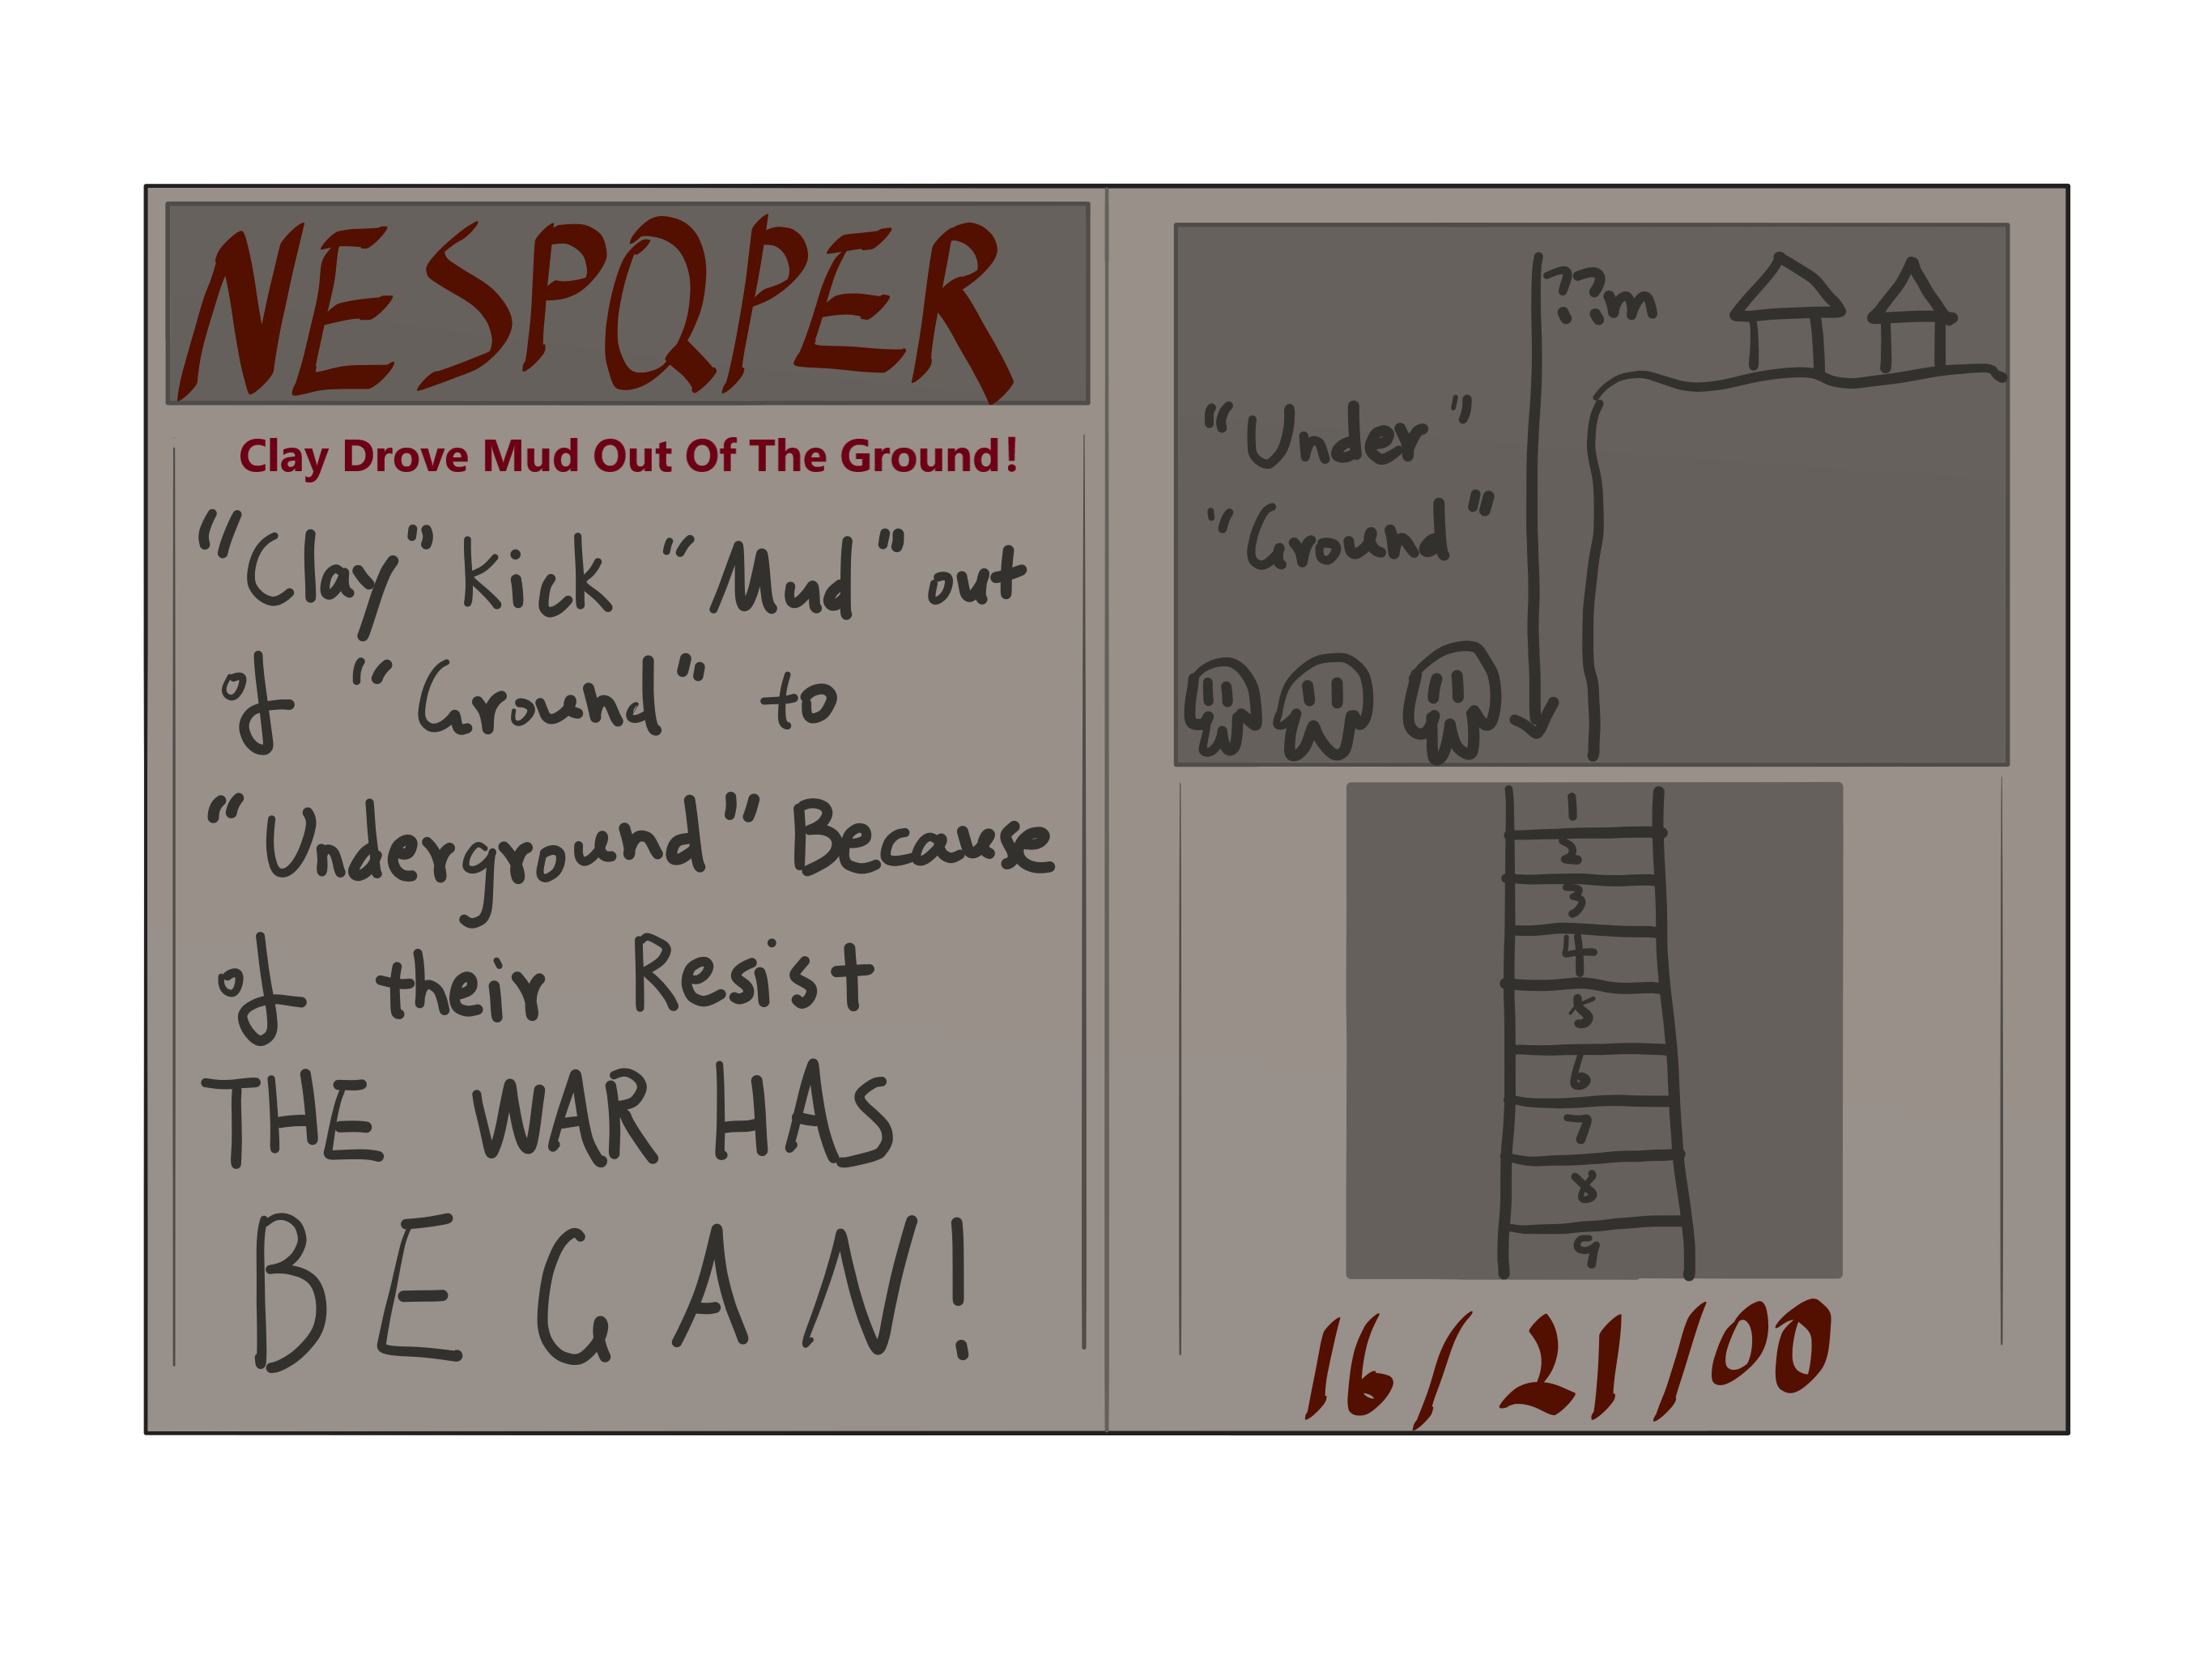 NESPQPER
Clay Drove Mud Out Of The Ground!
"Clay" Kick "Mud" out
of "Ground" to
"Underground" Because
of their Resist
THE WAR HAS
BEGAN!
??m
"Under"
"Ground"
1
2
3
4
5
6
7
8
9
16/21/00